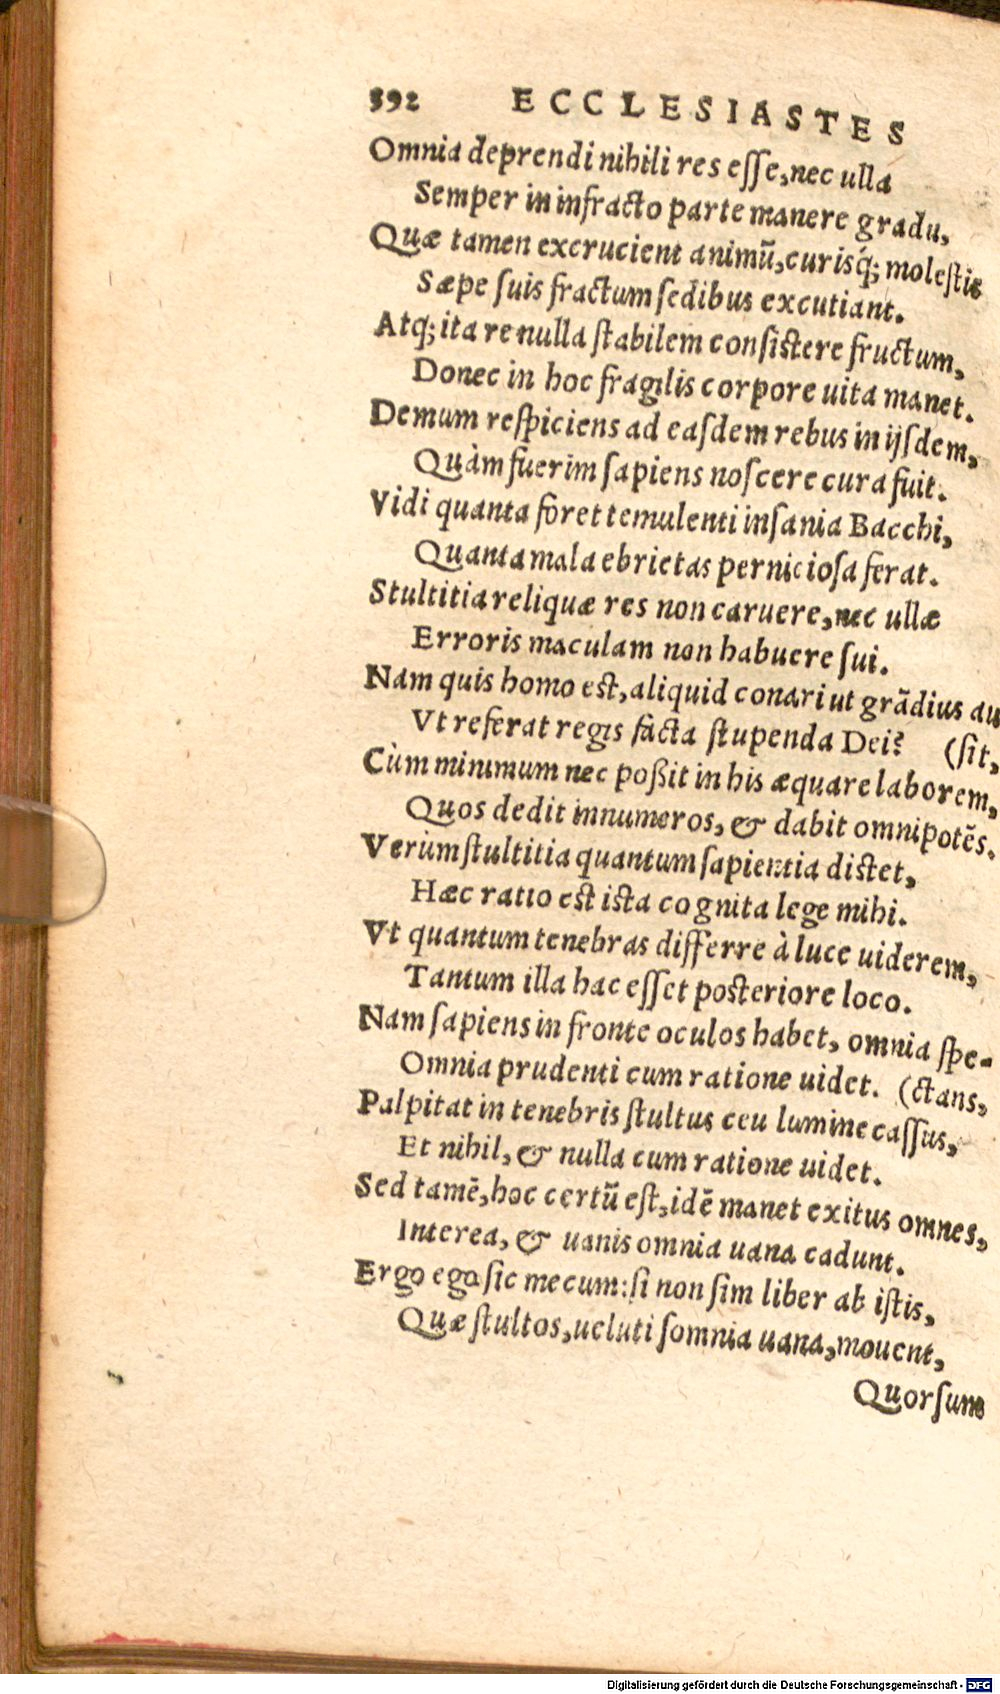 392 ECCLESIASTES
Omnia deprendi nihili res eſſe, nec ulla
Semper in infracto parte manere gradu,
Quæ tamen excrucient animū, curisq́; moleſtis
Sæpe ſuis fractum ſedibus excutiant.
Atq; ita re nulla ſtabilem conſiſtere fructum,
Donec in hoc fragilis corpore uita manet.
Demum reſpiciens ad eaſdem rebus in ijſdem,
Quàm fuerim ſapiens noſcere cura fuit.
Vidi quanta foret temulenti inſania Bacchi,
Quanta mala ebrietas pernicioſa ferat.
Stultitia reliquæ res non caruere, nec ullæ
Erroris maculam non habuere ſui.
Nam quis homo eſt, aliquid conari ut grādius au
Vt referat regis facta ſtupenda Dei? (ſit,
Cùm minimum nec poßit in his æquare laborem,
Quos dedit innumeros, & dabit omnipotēs.
Verùm ſtultitia quantum ſapientia diſtet,
Hæc ratio eſt iſta cognita lege mihi.
Vt quantum tenebras differre à luce uiderem,
Tantum illa hac eſſet poſteriore loco.
Nam ſapiens in fronte oculos habet, omnia ſpe-
Omnia prudenti cum ratione uidet. (ctans,
Palpitat in tenebris ſtultus ceu lumine caſſus,
Et nihil, & nulla cum ratione uidet.
Sed tamē, hoc certū eſt, idē manet exitus omnes,
Interea, & uanis omnia uana cadunt.
Ergo ego ſic mecum: ſi non ſim liber ab iſtis,
Quæ ſtultos, ueluti ſomnia uana, mouent,
Quorſum
Digitalisierung gefördert durch die Deutsche Forschungsgemeinschaft - DFG